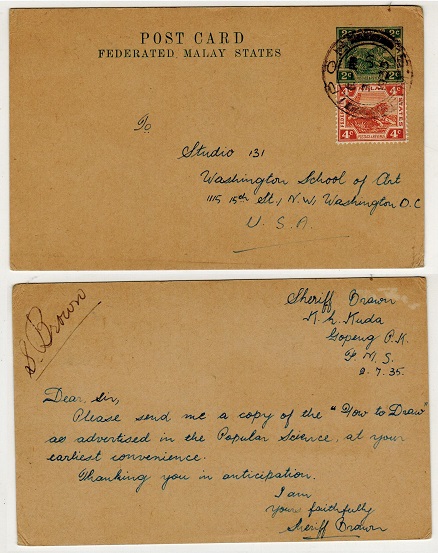 POST CARD
FEDERATED MALAY STATES
2c 2c
2c 2c
4c 4c
To
Studio 131
Washington School of Art
1115 15th St., N.W. Washington D.C
U.S.A.
S. Brown
Sheriff Brown
Kuda
Gopeng P.K.
F.M.S.
2.7.35
Dear Sir,
Please send me a copy of the "How to Draw"
as advertised in the Popular Science, at your
earliest convenience.
Thanking you in anticipation.
I am
Yours faithfully
Sheriff Brown